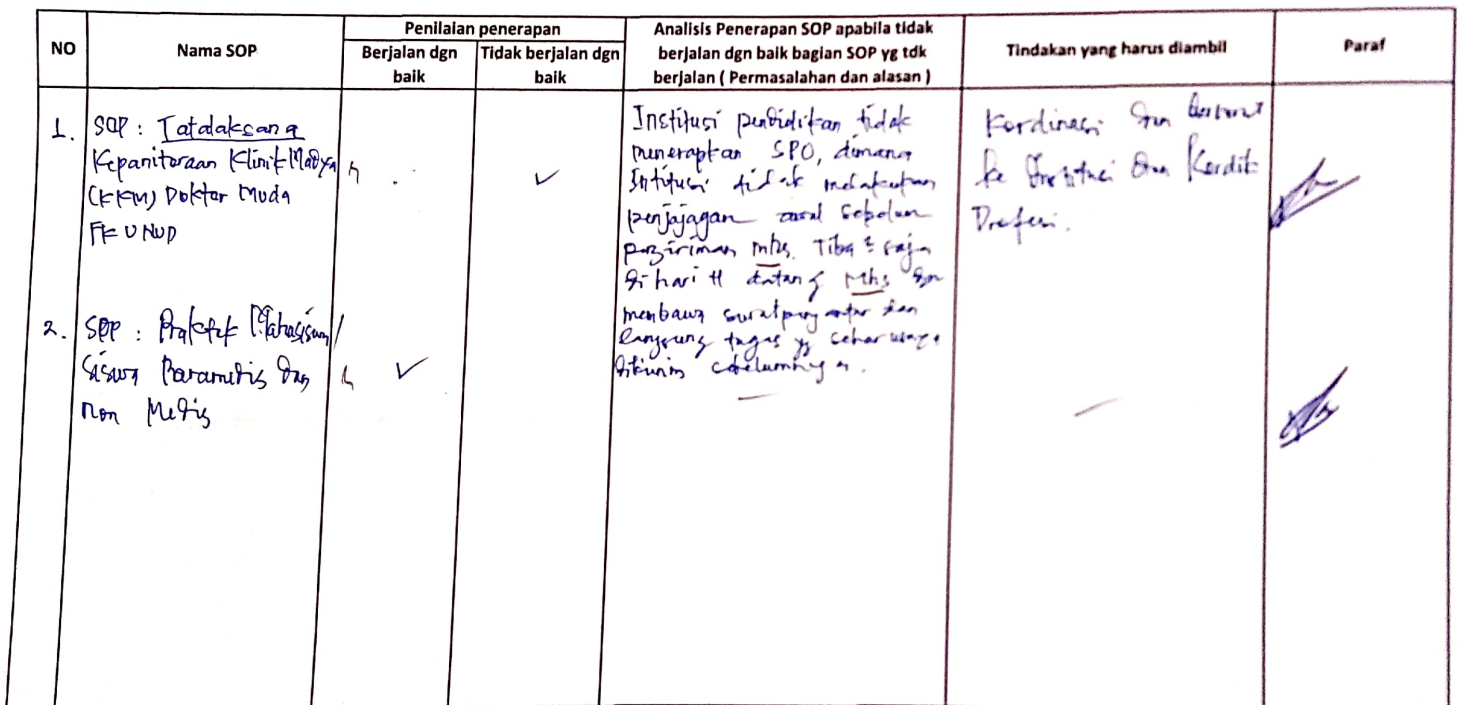 NO
Nama SOP
Penilaian penerapan
Berjalan dgn baik
Tidak berjalan dgn baik
Analisis Penerapan SOP apabila tidak
berjalan dgn baik bagian SOP yg tdk
berjalan ( Permasalahan dan alasan )
Tindakan yang harus diambil
Paraf
1.
SOP : Tatalaksana
Kepaniteraan Klinik Madya
(KKM) Dokter Muda
FK UNUD
✓
Institusi pendidikan tidak
menerapkan SPO, dimana
Intitusi tidak melakukan
penjajagan awal sebelum
pengiriman mhs. Tiba² saja
di hari H datang Mhs dgn
membawa surat pengantar dan
langsung tugas yg seharusnya
dikirim sebelumnya.
Kordinasi dan
ke Institusi dan Kordik
Profesi.
2.
SOP : Praktek Mahasiswa/
Siswa Paramedis dan
Non Medis
✓
—
—